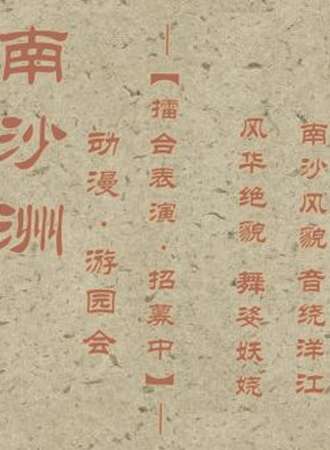 南沙风貌 音绕洋江
风华绝貌 舞姿妖娆
—【擂台表演·招募中】—
动漫·游园会
南沙洲